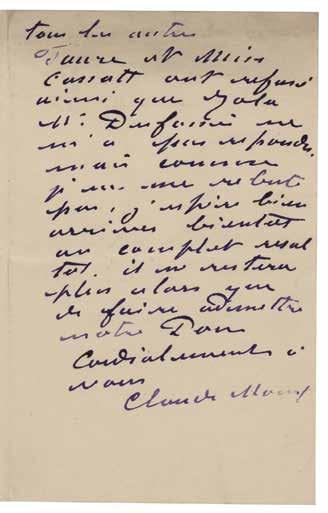 tous les autres
Faure et Miss
Cassatt ont refusé
ainsi que Zola
Mr. Dufassée ne
m'a pas repondu.
mais comme
je ne me rebute
pas, j'espère bien
arriver bientot
au complet resul
tat. il ne restera
plus alors que
de faire admettre
notre Don
Cordialements à
vous
Claude Monet